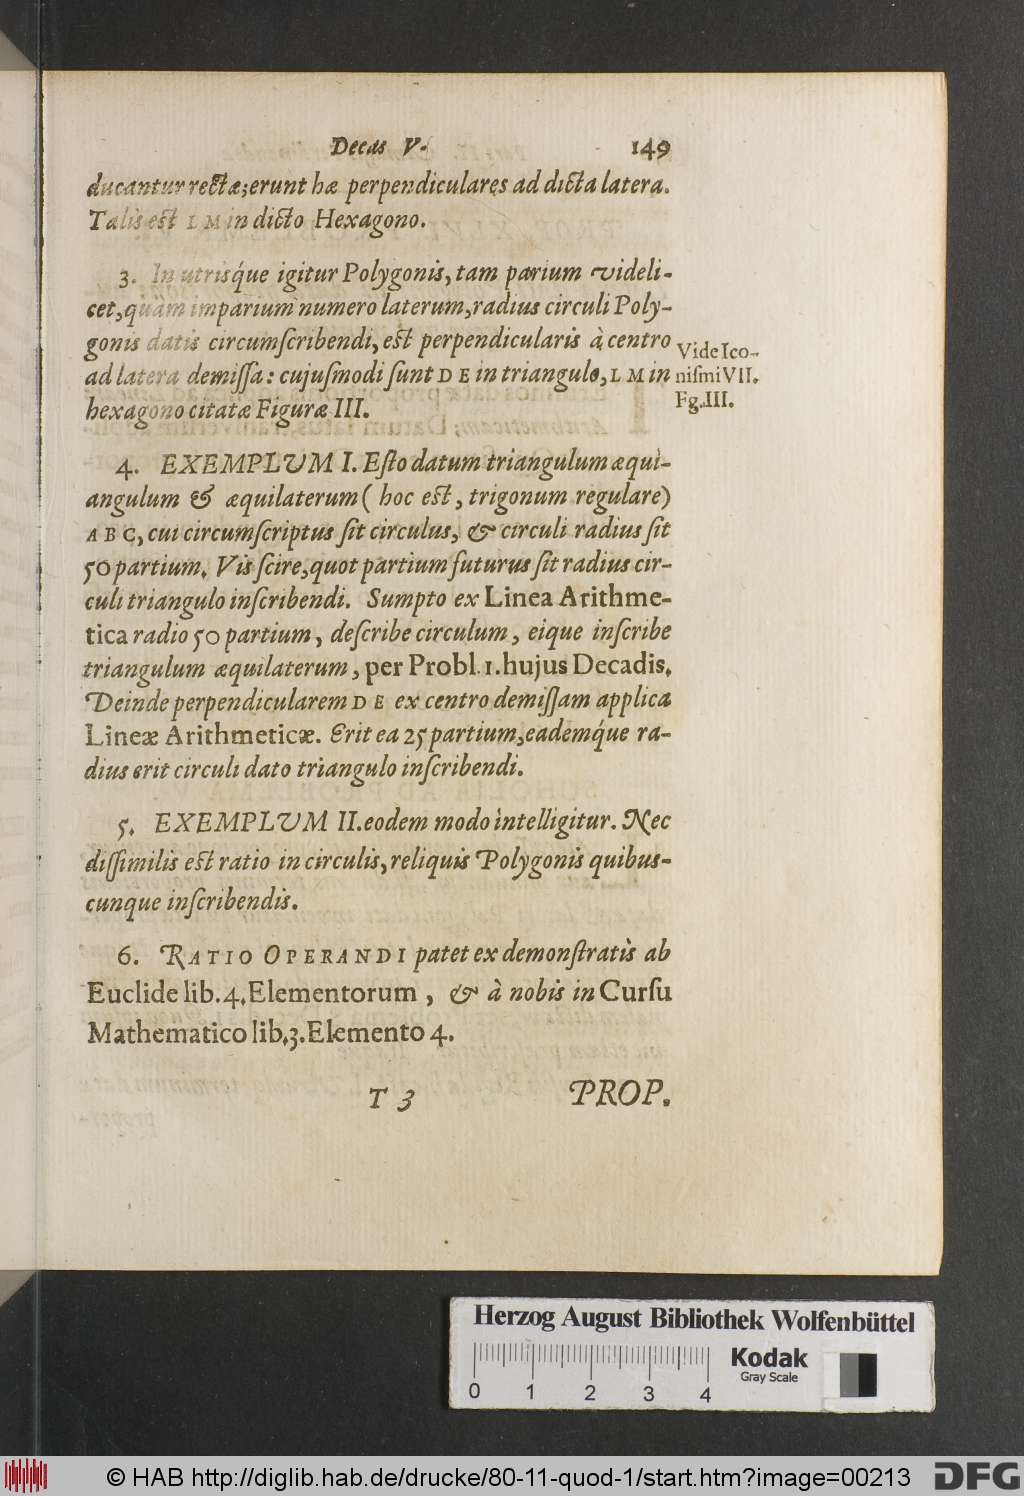 Decas V. 149
ducantur rectæ; erunt hæ perpendiculares ad dicta latera.
Talis est L M in dicto Hexagono.
3. In utrisq́ue igitur Polygonis, tam parium videli-
cet, quàm imparium numero laterum, radius circuli Poly-
gonis datis circumſcribendi, est perpendicularis à centro
ad latera demiſſa: cujuſmodi ſunt D E in triangulo, L M in
hexagono citatæ Figuræ III.
Vide Ico-
niſmi VII.
Fg. III.
4. EXEMPLUM I. Eſto datum triangulum æqui-
angulum & æquilaterum ( hoc est, trigonum regulare)
A B C, cui circumſcriptus ſit circulus, & circuli radius ſit
50 partium. Vis ſcire, quot partium futurus ſit radius cir-
culi triangulo inſcribendi. Sumpto ex Linea Arithme-
tica radio 50 partium, deſcribe circulum, eique inſcribe
triangulum æquilaterum, per Probl. 1. hujus Decadis.
Deinde perpendicularem D E ex centro demiſſam applica
Lineæ Arithmeticæ. Erit ea 25 partium, eademq́ue ra-
dius erit circuli dato triangulo inſcribendi.
5. EXEMPLUM II. eodem modo intelligitur. Nec
diſſimilis est ratio in circulis, reliquis Polygonis quibus-
cunque inſcribendis.
6. RATIO OPERANDI patet ex demonſtratis ab
Euclide lib. 4. Elementorum, & à nobis in Curſu
Mathematico lib. 3. Elemento 4.
T 3 PROP.
Herzog August Bibliothek Wolfenbüttel
Kodak
Gray Scale
0 1 2 3 4
© HAB http://diglib.hab.de/drucke/80-11-quod-1/start.htm?image=00213
DFG